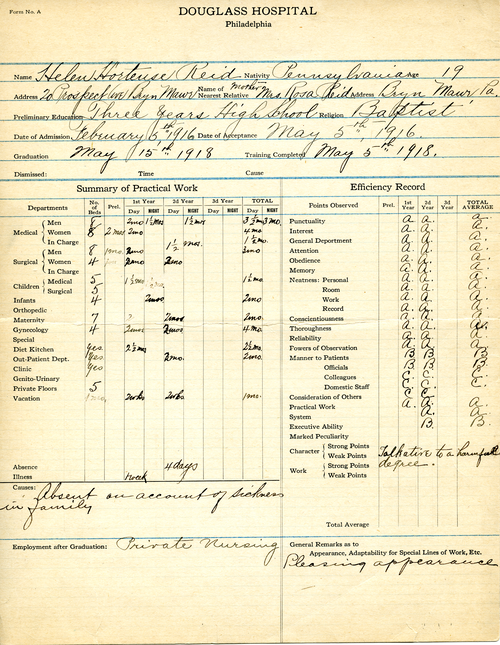 Form No. A
DOUGLASS HOSPITAL
Philadelphia
Name Helen Hortense Reid Nativity Pennsylvania Age 19
Address 20 Prospect ave Bryn Mawr Name of Mother Nearest Relative Mrs Rosa Reid Address Bryn Mawr Pa.
Preliminary Education Three Years High School Religion Baptist
Date of Admission February 5th 1916 Date of Acceptance May 5th 1916.
Graduation May 15th 1918 Training Completed May 5th 1918.
Dismissed: Time Cause
Summary of Practical Work
Departments No. of Beds Prel. 1st Year 2d Year 3d Year TOTAL
Day NIGHT Day NIGHT Day NIGHT Day NIGHT
Medical Men 8 2mo 1½mos 1½mos 3½mo 3mo.
Women 8 2mos 2mo 4mo
In Charge 1½ mos. 1½mo.
Surgical Men 8 1mo. 2mo 3mo
Women 4 2mo 2mo
In Charge
Children Medical 5 1½mo 1½mo.
Surgical 5
Infants 4 2mos 2mo
Orthopedic
Maternity 7 2mos 2mo.
Gynecology 4 2mos 2mos 4mo.
Special
Diet Kitchen yes 2½mos 2½mo
Out-Patient Dept. yes 2mo. 2mo.
Clinic yes
Genito-Urinary
Private Floors 5
Vacation 2wks 2wks 1mo.
Absence 4days
Illness 1week
Causes: Absent on account of sickness
in family
Employment after Graduation: Private Nursing
Efficiency Record
Points Observed Prel. 1st Year 2d Year 3d Year TOTAL AVERAGE
Punctuality A. A. A.
Interest A. A. A.
General Department A. A. A.
Attention A. A. A.
Obedience A. A. A.
Memory A. A. A.
Neatness: Personal A. A. A.
Room A. A. A.
Work A. A. A.
Record A. A. A.
Conscientiousness A. A. A.
Thoroughness A. A. A.
Reliability A. A. A.
Powers of Observation A. A. A.
Manner to Patients B B B
Officials B. B. B.
Colleagues C. C. C.
Domestic Staff C. C. C.
Consideration of Others C C. C.
Practical Work A. A. A.
System A. A.
Executive Ability B. B.
Marked Peculiarity
Character Strong Points Talkative to a harmful
Weak Points degree.
Work Strong Points
Weak Points
Total Average
General Remarks as to
Appearance, Adaptability for Special Lines of Work, Etc.
Pleasing appearance